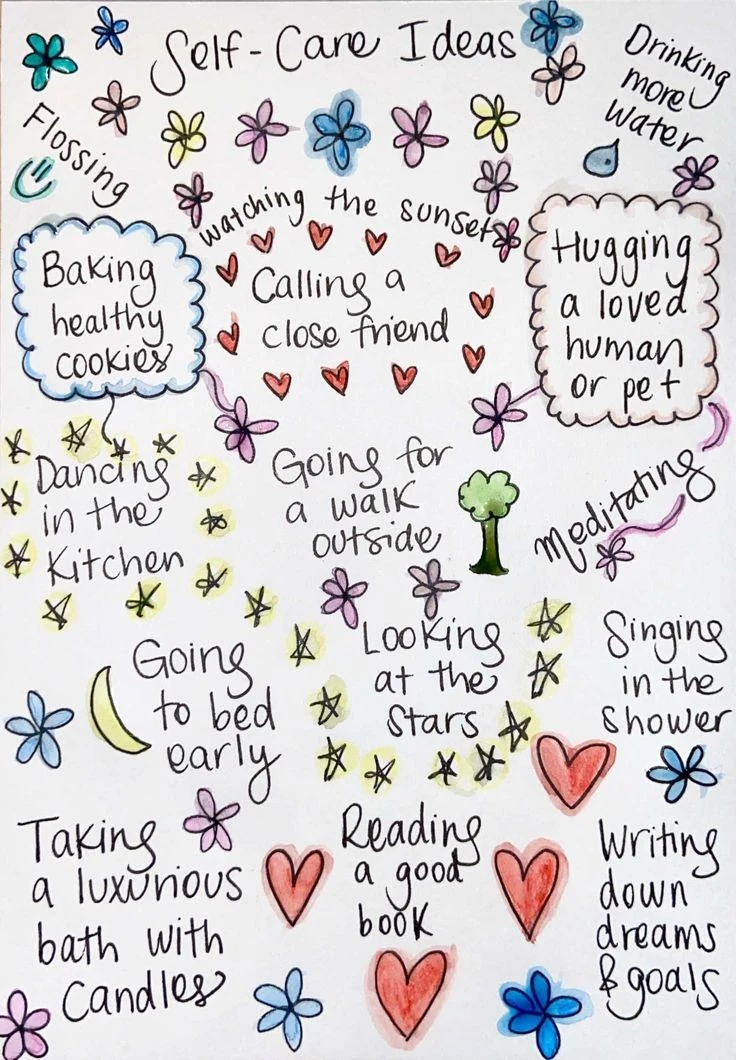 Self-Care Ideas
Flossing
Drinking
more
water
watching the sunset
Baking
healthy
cookies
Calling a
close friend
Hugging
a loved
human
or pet
Dancing
in the
Kitchen
Going for
a walk
outside
Meditating
Going
to bed
early
Looking
at the
Stars
Singing
in the
shower
Taking
a luxurious
bath with
Candles
Reading
a good
book
Writing
down
dreams
& goals